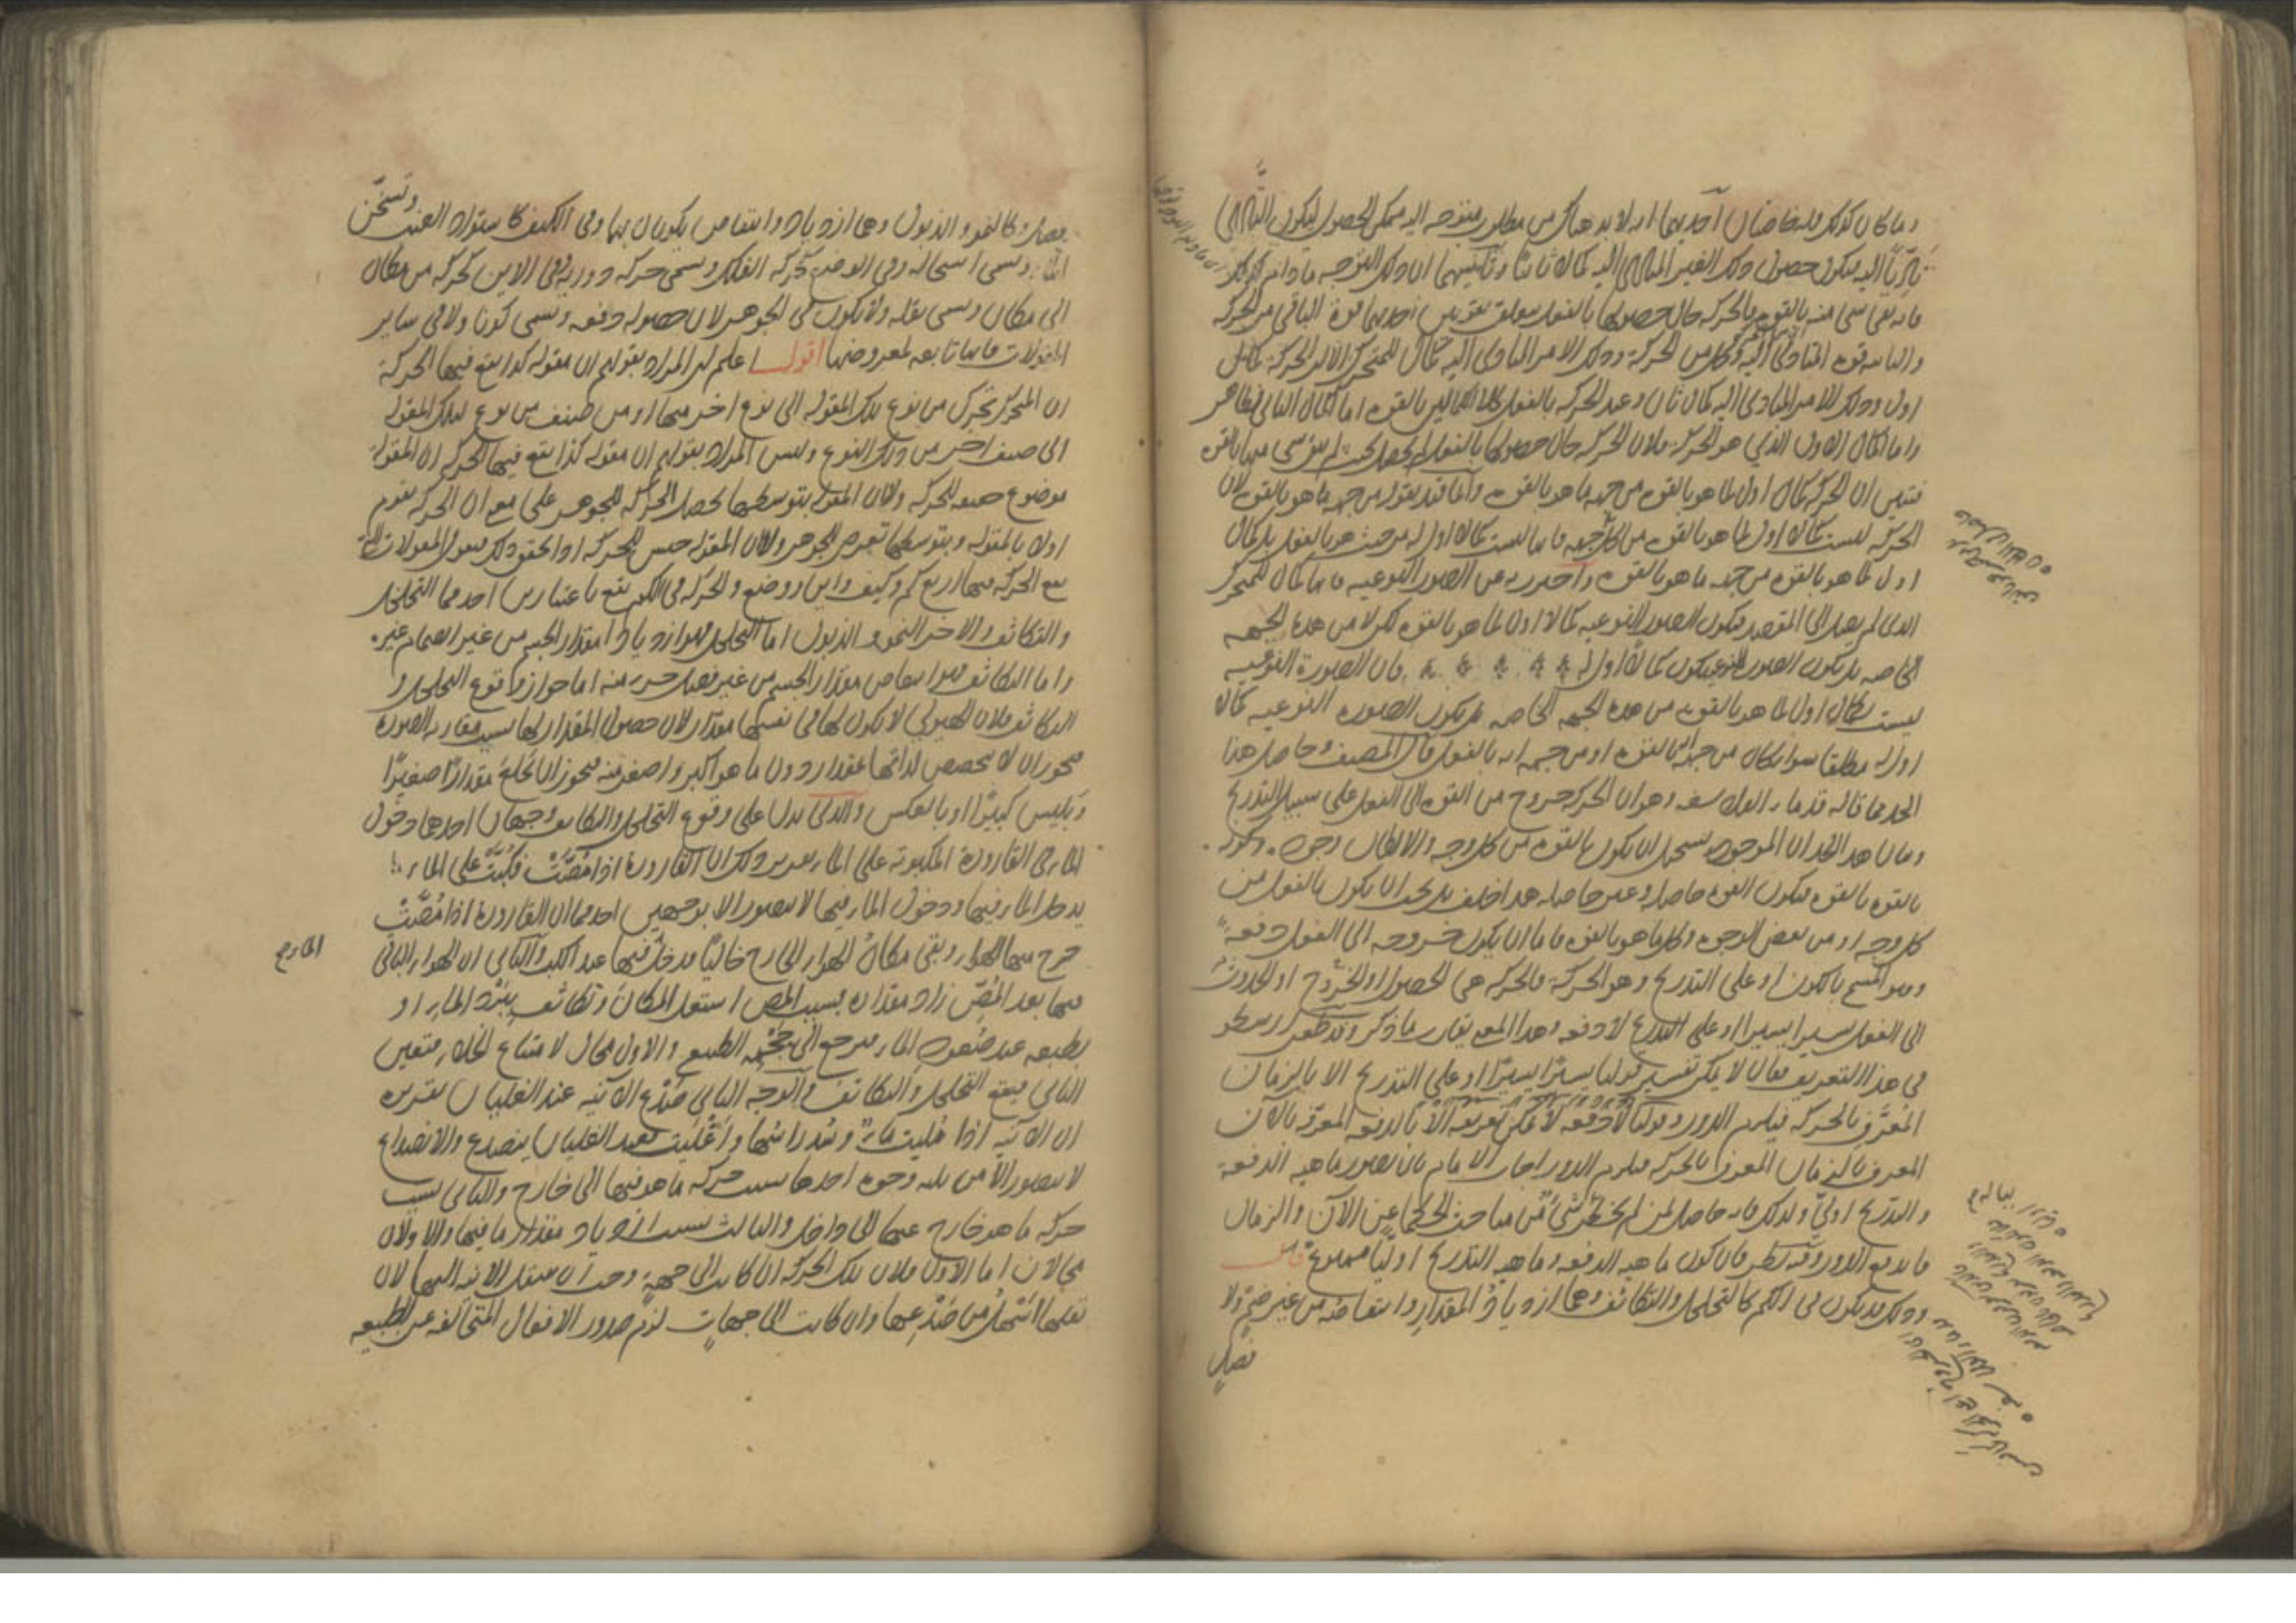 وما كان كذلك فله خاصتان احديهما انه لا بد هناك من مطلوب متوجه اليه ممكن الحصول ليكون التأدي
تأديا اليه فيكون حصول ذلك الغير المتأدى اليه كمالا ثانيا وثانيتهما ان ذلك التوجه ما دام كذلك
فانه بقي شي منه بالقوه فالحركه حال حصولها بالفعل يتعلق بقوتين احديهما قوة الباقي من الحركه
والثانيه قوه المتأدى اليه وكل من الحركة وذلك الامر المتأدى اليه كمال للمتحرك الا ان الحركة كمال
اول وذلك الامر المتأدى اليه كمال ثان وعند الحركه بالفعل كلا الكمالين بالقوه اما الكمال الثاني فظاهر
واما الكمال الاول الذي هو الحركة فلان الحركه حال حصولها بالفعل لم يحصل بحيث لم يبق شي منها بالقوه
فتبين ان الحركه كمال اول لما هو بالقوه من جهه ما هو بالقوه وانما قيد بقوله من جهه ما هو بالقوه لان
الحركه ليست كمالا اول لما هو بالقوه من كل جهه فانها ليست كمالا اول له من حيث هو بالفعل بل كمال
اول لما هو بالقوه من جهه ما هو بالقوه واحترز به عن الصور النوعيه فانها كمال للمتحرك
الذي لم يصل الى المقصد فيكون الصور النوعيه كمالا اول لما هو بالقوه لكن لا من هذه الجهه
الخاصه بل يكون الصور النوعيه كمالا اول فان الصورة النوعيه
ليست بكمال اول لما هو بالقوه من هذه الجهه الخاصه بل يكون الصوره النوعيه كمالا
اول له مطلقا سوا كان من جهه انه بالقوه او من جهه انه بالفعل قال المصنف وحاصل هذا
الحد ما قاله قدماء الفلاسفه وهو ان الحركه خروج من القوه الى الفعل على سبيل التدريج
وبيان هذا الحد ان الموجود يستحيل ان يكون بالقوه من كل وجه والا لكان وجوده
بالقوه بالقوه فيكون القوه حاصله وغير حاصله هذا خلف بل يجب ان يكون بالفعل من
كل وجه او من بعض الوجوه وكل ما هو بالقوه فاما ان يكون خروجه الى الفعل دفعه
وهو المسمى بالكون او على التدريج وهو الحركة فالحركه هي الحصول او الخروج او الحدوث
الى الفعل يسيرا يسيرا او على التدريج لا دفعه وهذا المعنى يقارب ما ذكر وقد طعن ارسطو
في هذا التعريف فقال لا يمكن تفسير قولنا يسيرا يسيرا او على التدريج الا بالزمان
المعرف بالحركه فيلزم الدور وقولنا لا دفعه لا يمكن تعريفه الا بالدفعه المعرفة بالآن
المعرف بالزمان المعرف بالحركه فيلزم الدور اجاب الامام بان تصور ماهيه الدفعة
والتدريج اولي ولذلك فانه حاصل لمن لم يخطر شي من مباحث الحكما عن الآن والزمان
فاندفع الدور وفيه نظر فان كون ماهيه الدفعه وماهيه التدريج اوليا ممنوع قال
وذلك قد يكون في الكم كالتخلخل والتكاثف وهما ازدياد المقدار وانتقاصه من غير ضم ولا
فصل
فصل وكالنمو والذبول وهما ازدياد وانتقاص يكونان بهما وفي الكيف كاسوداد العنب وتسخن
الماء وتسمى استحاله وفي الوضع كحركه الفلك وتسمى حركه دوريه وفي الاين كحركه من مكان
الى مكان وتسمى نقله ولا يكون في الجوهر لان حصوله دفعه وتسمى كونا ولا في ساير
المقولات فانها تابعه لمعروضها اقول اعلم ان المراد بقولهم ان مقوله كذا يقع فيها الحركة
ان المتحرك يتحرك من نوع تلك المقوله الى نوع اخر منها او من صنف من نوع لتلك المقوله
الى صنف اخر من ذلك النوع وليس المراد بقولهم ان مقوله كذا يقع فيها الحركه ان المقوله
موضوع حقيقي للحركه ولا ان المقوله بتوسطها يحصل الحركه للجوهر على معنى ان الحركه تقوم
اولا بالمقوله وبتوسطها تعرض الجوهر ولا ان المقوله جنس للحركه اذا تحقق ذلك فنقول المقولات التي
يقع الحركه فيها اربع كم وكيف واين ووضع والحركه في الكم يقع باعتبارين احدهما التخلخل
والتكاثف والاخر النمو والذبول اما التخلخل فهو ازدياد مقدار الجسم من غير انضمام غيره
واما التكاثف فهو انتقاص مقدار الجسم من غير فصل جزء منه اما جواز وقوع التخلخل و
التكاثف فلان الهيولى لا يكون لها في نفسها مقدار لان حصول المقدار لها بسبب مقارنه الصوره
فيجوز ان لا يتخصص لذاتها بمقدار دون ما هو اكبر واصغر منه فيجوز ان تخلع مقدارا صغيرا
وتلبس كبيرا او بالعكس والذي يدل على وقوع التخلخل والتكاثف وجهان احدهما دخول
الماء في القارورة المكبوبه على الماء تقرير ذلك ان القارورة اذا مُصَّت فكُبَّت على الماء
يدخل الماء فيها ودخول الماء فيها لا يتصور الا بوجهين احدهما ان القارورة اذا مُصَّت
خرج منها الهواء وبقي مكان الهواء الخارج خاليا فدخل فيها عند الكب والثاني ان الهواء الباقي
الخارج
فيها بعد المص زاد مقداره بسبب المص اشتغل المكان وتكاثف ببرد الماء او
بطبعه عند صعود الماء فيرجع الى حجمه الطبيعي والاول محال لامتناع الخلاء فتعين
الثاني فيقع التخلخل والتكاثف والوجه الثاني صدع الآنيه عند الغليان تقريره
ان الآنيه اذا مُلئت ماء وشد راسها واُغليت فعند الغليان ينصدع والانصداع
لا يتصور الا من ثلثه وجوه احدها بسبب حركه ما هو فيها الى خارج والثاني بسبب
حركه ما هو خارج عنها الى داخل والثالث بسبب ازدياد مقدار ما فيها والاولان
محالان اما الاول فلان تلك الحركه ان كانت الى جهة وجب ان ينتقل الانيه اليها لان
نقلها اسهل من صدعها وان كانت الى جهات لزم صدور الافعال المتخالفه عن الطبيعه